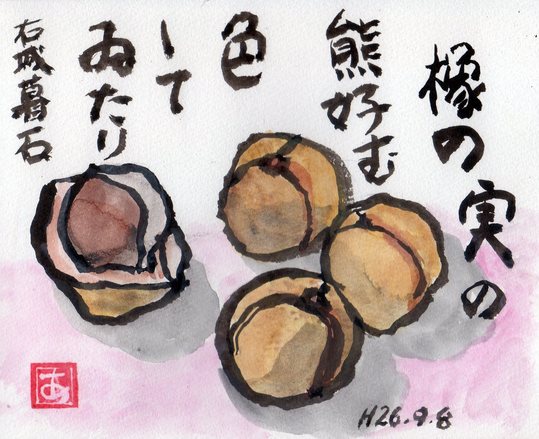 橡の実の
熊好む
色
して
ゐたり
右城暮石
あ
H26.9.8